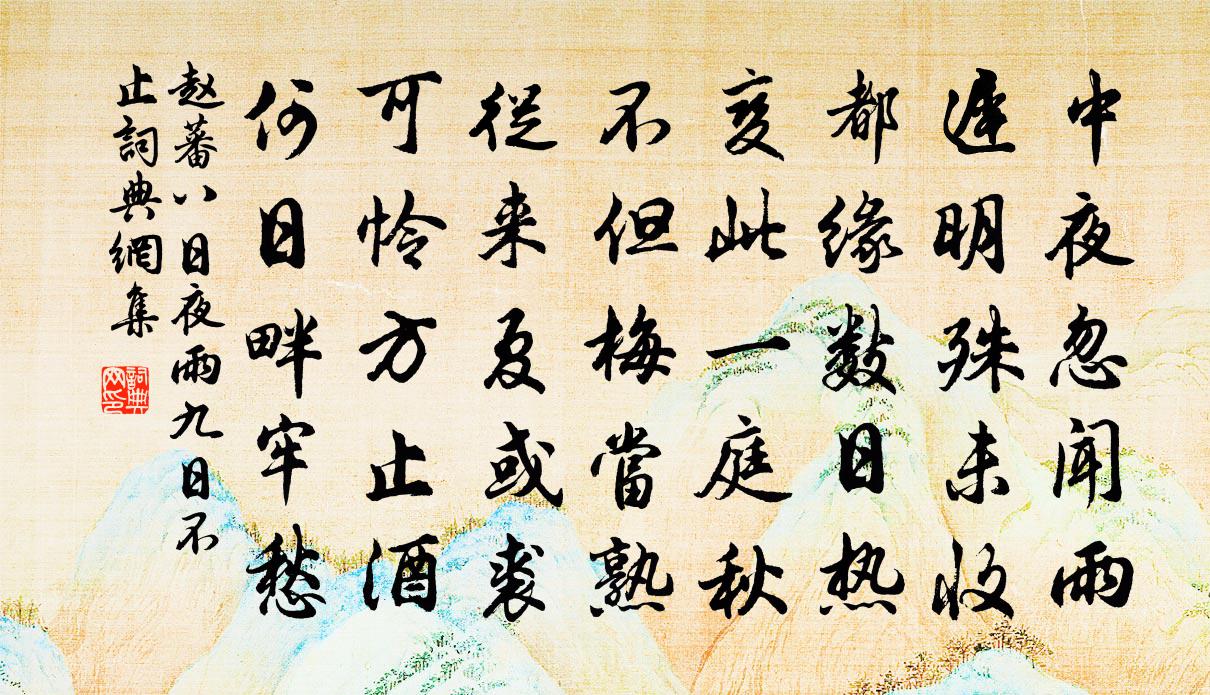 中夜忽聞雨
遲明殊未收
都緣数日热
变此一庭秋
不但梅當熟
從来夏或裘
可怜方止酒
何日畔牢愁
赵蕃八日夜雨九日不
止詞典網集
詞典網印